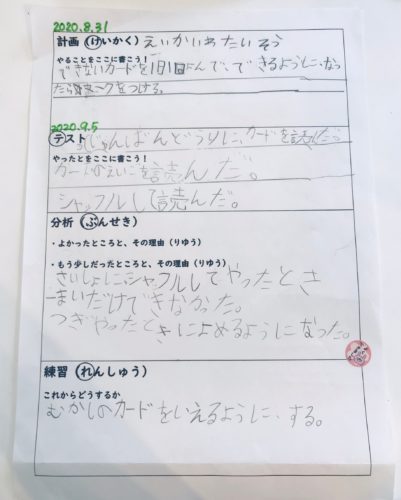 2020.8.31
計画（けいかく）えいかいわたいそう
やることをここに書こう！
できないカードを1日1回よんで、できるようになっ
たら　マークをつける。
2020.9.5
テスト　じゅんばんどうりに、カードを読んだ。
やったことをここに書こう！
カードのえいごを読んだ。
シャッフルして読んだ。
分析（ぶんせき）
・よかったところと、その理由（りゆう）
・もう少しだったところと、その理由（りゆう）
さいしょにシャッフルしてやったとき
一まいだけできなかった。
つぎやったときによめるようになった。
練習（れんしゅう）
これからどうするか
むかしのカードをいえるように、する。